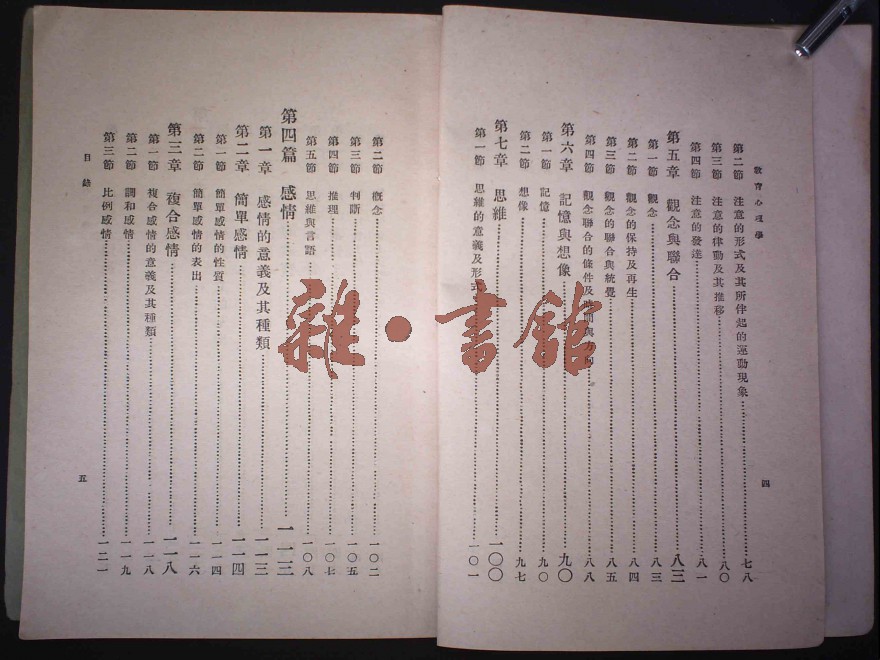 教育心理學
第二節 注意的形式及其所伴起的運動現象 七八
第三節 注意的律動及其推移 八〇
第四節 注意的發達 八一
第五章 觀念與聯合 八三
第一節 觀念 八三
第二節 觀念的保持及再生 八四
第三節 觀念的聯合與統覺 八五
第四節 觀念聯合的條件及時間與方向 八八
第六章 記憶與想像 九〇
第一節 記憶 九〇
第二節 想像 九七
第七章 思維 一〇〇
第一節 思維的意義及形式 一〇一
四
第二節 概念 一〇二
第三節 判斷 一〇五
第四節 推理 一〇七
第五節 思維與言語 一〇八
第四篇 感情 一一三
第一章 感情的意義及其種類 一一三
第二章 簡單感情 一一四
第一節 簡單感情的性質 一一四
第二節 簡單感情的表出 一一六
第三章 複合感情 一一八
第一節 複合感情的意義及其種類 一一八
第二節 調和感情 一一九
第三節 比例感情 一二一
目錄
五
雜•書館